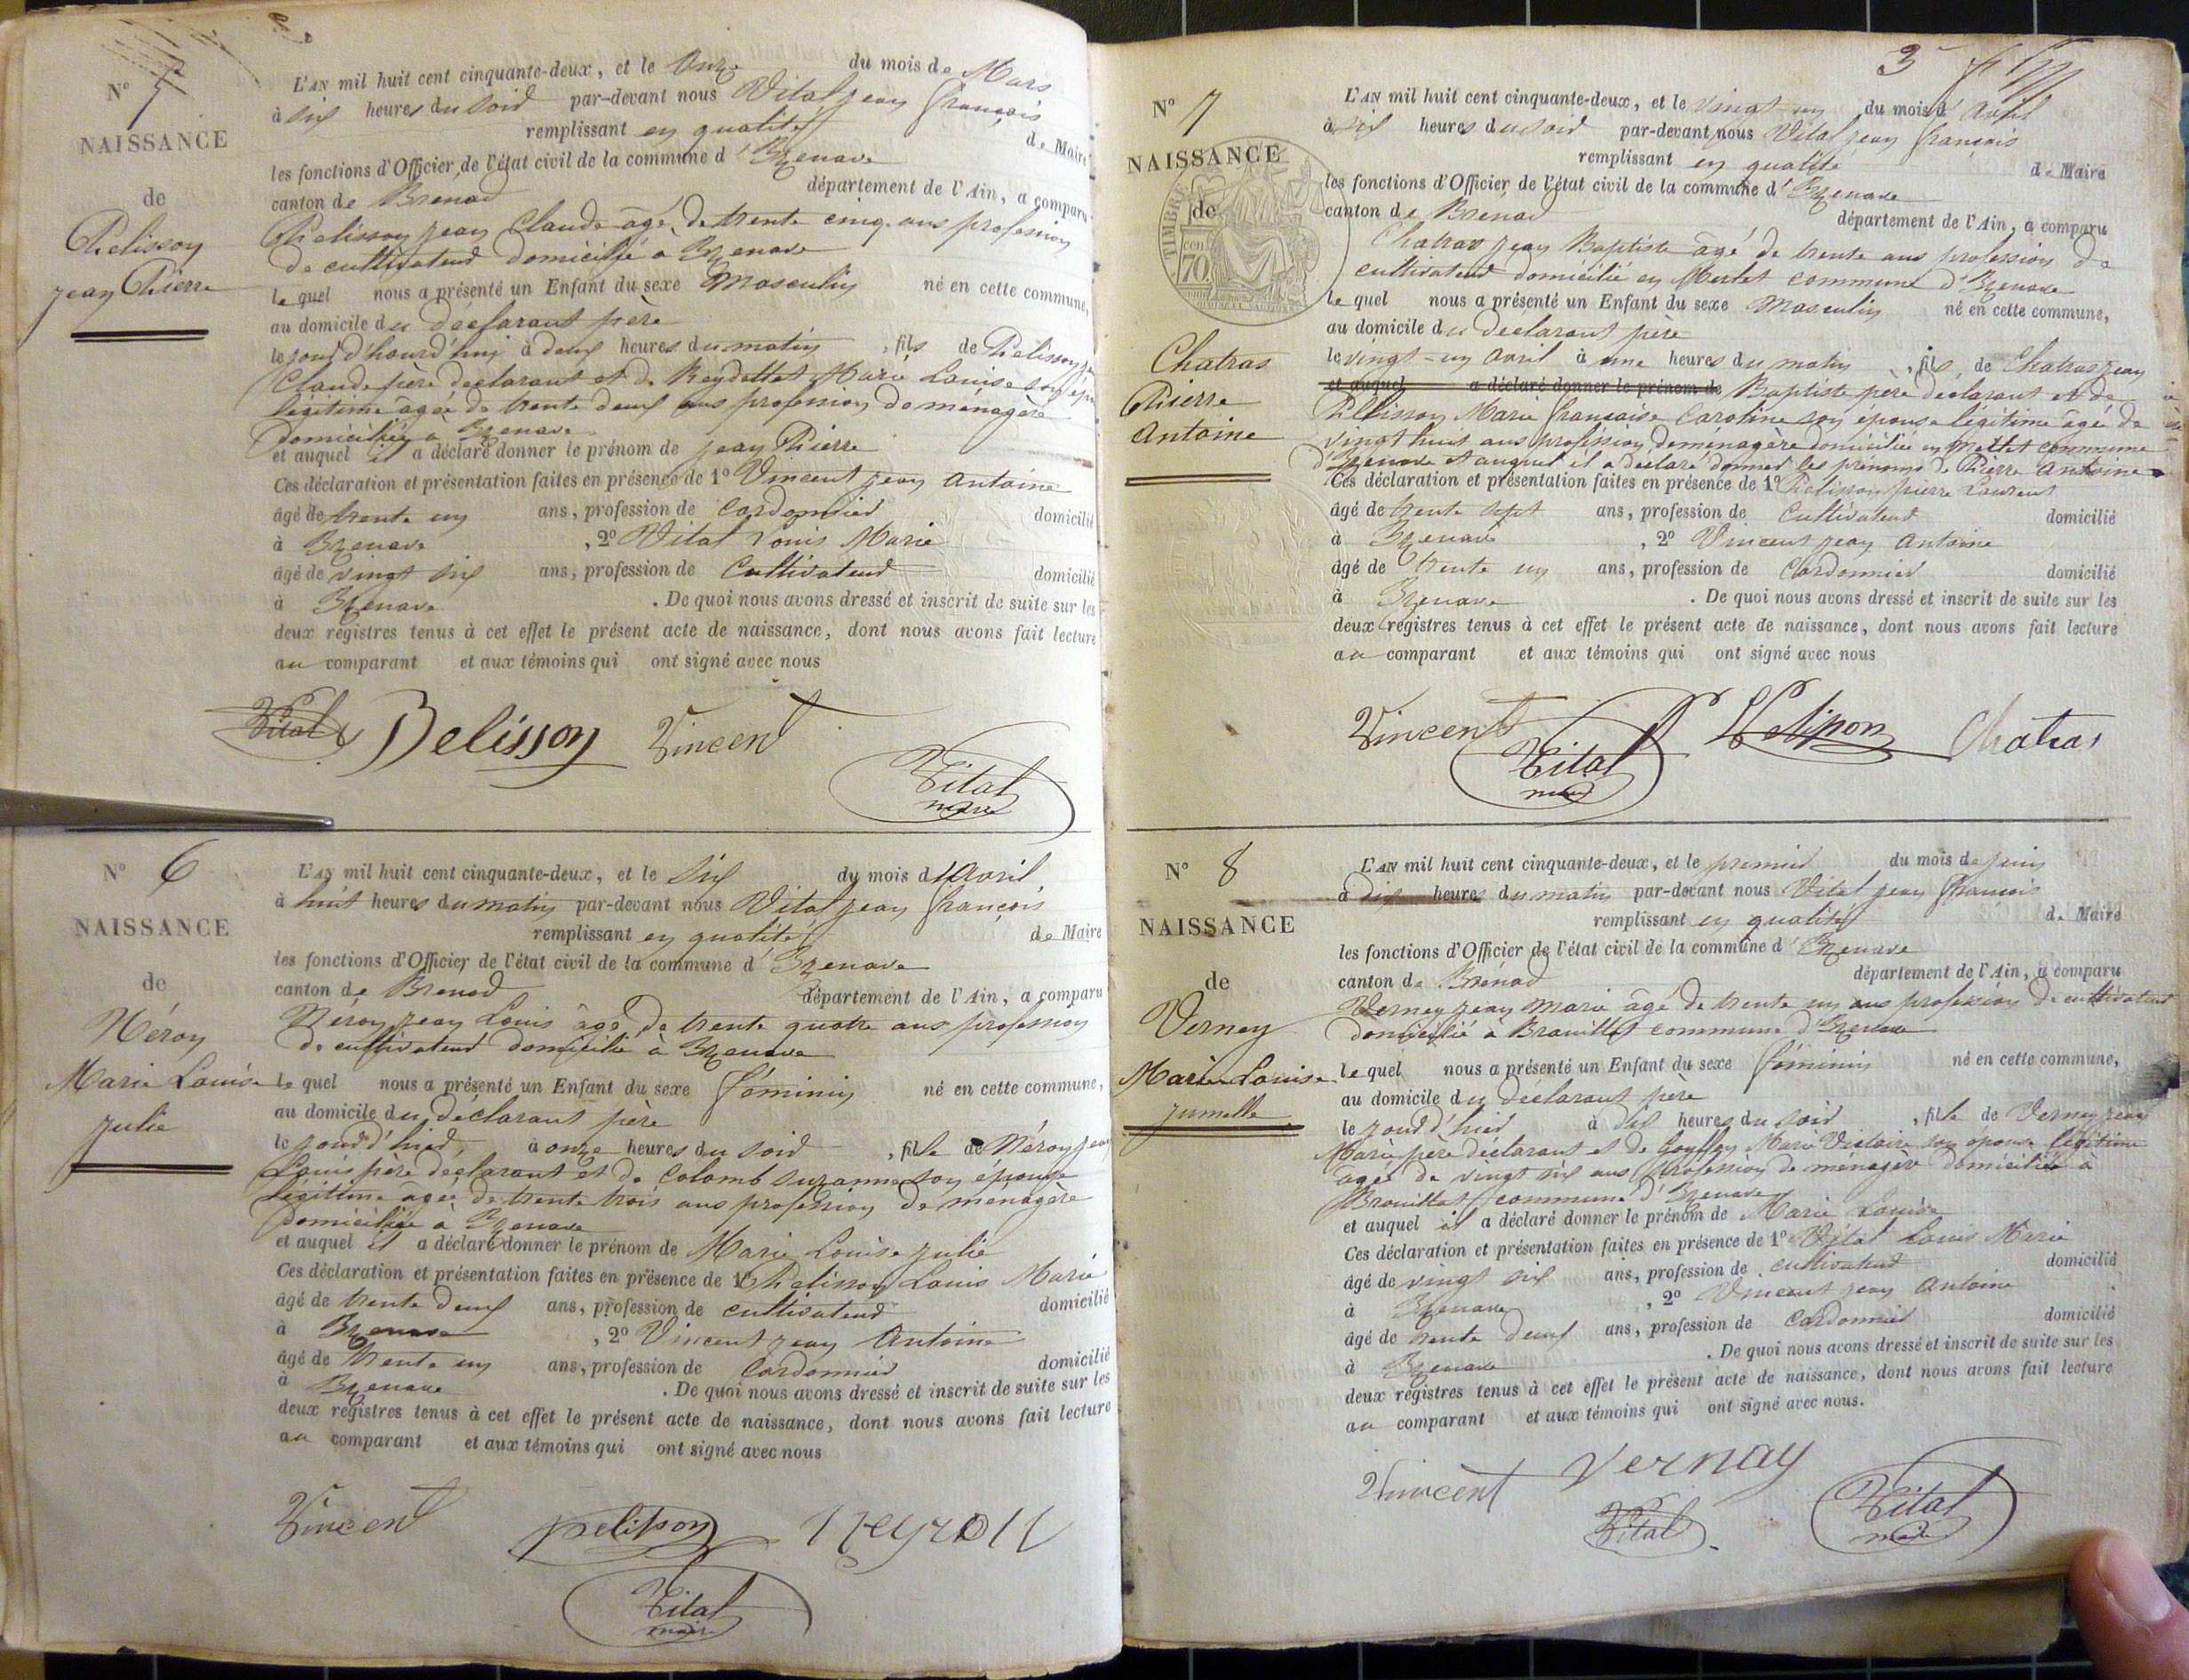 N° 5
NAISSANCE
de
Pelisson
Jean Pierre
L'AN mil huit cent cinquante-deux, et le onze du mois de Mars
à six heures du soir par-devant nous Vital jean françois
remplissant en qualité de Maire
les fonctions d'Officier de l'état civil de la commune d'Izenave
canton de Brénod département de l'Ain, a comparu
Pelisson jean Claude âgé de trente cinq ans profession
de cultivateur domicilié à Izenave
le quel nous a présenté un Enfant du sexe Masculin né en cette commune,
au domicile du déclarant père
le jourd'hourd'hui à deux heures du matin, fils de Pelisson
Claude père déclarant et de Reydellet Marie Louise son
légitime âgée de trente deux ans profession de ménagère
domiciliée à Izenave
et auquel il a déclaré donner le prénom de jean Pierre
Ces déclaration et présentation faites en présence de 1° Vincent jean antoine
âgé de trente un ans, profession de Cordonnier domicilié
à Izenave, 2° Vital Louis Marie
âgé de vingt six ans, profession de Cultivateur domicilié
à Izenave. De quoi nous avons dressé et inscrit de suite sur les
deux registres tenus à cet effet le présent acte de naissance, dont nous avons fait lecture
au comparant et aux témoins qui ont signé avec nous
Vital Pelisson Vincent
Vital
maire
N° 6
NAISSANCE
de
Néron
Marie Louise
julie
L'AN mil huit cent cinquante-deux, et le six du mois d'avril
à huit heures du matin par-devant nous Vital jean françois
remplissant en qualité de Maire
les fonctions d'Officier de l'état civil de la commune d'Izenave
canton de Brenod département de l'Ain, a comparu
Néron jean Louis âgé de trente quatre ans profession
de cultivateur domicilié à Izenave
le quel nous a présenté un Enfant du sexe féminin né en cette commune,
au domicile du déclarant père
le jour d'hier, à onze heures du soir, fille de Néron jean
Louis père déclarant et de Colomb suzanne son épouse
légitime âgée de trente trois ans profession de ménagère
domiciliée à Izenave
et auquel il a déclaré donner le prénom de Marie Louise julie
Ces déclaration et présentation faites en présence de 1° Pelisson Louis Marie
âgé de trente deux ans, profession de cultivateur domicilié
à Izenave, 2° Vincent jean Antoine
âgé de trente un ans, profession de Cordonnier domicilié
à Izenave. De quoi nous avons dressé et inscrit de suite sur les
deux registres tenus à cet effet le présent acte de naissance, dont nous avons fait lecture
au comparant et aux témoins qui ont signé avec nous
Vincent pelisson Neyron
Vital
maire
3
N° 7
NAISSANCE
de
TIMBRE
70
Chatras
Pierre
Antoine
L'AN mil huit cent cinquante-deux, et le vingt un du mois d'avril
à six heures du soir par-devant nous Vital jean françois
remplissant en qualité de Maire
les fonctions d'Officier de l'état civil de la commune d'Izenave
canton de Brénod département de l'Ain, a comparu
Chatras jean Baptiste âgé de trente ans profession de
cultivateur domicilié en Mortet commune d'Izenave
le quel nous a présenté un Enfant du sexe Masculin né en cette commune,
au domicile du déclarant père
le vingt-un avril à une heures du matin, fils de Chatras jean
et auquel a déclaré donner le prénom de Baptiste père déclarant et de
Pelisson Marie françoise Caroline son épouse légitime âgé de
vingt huit ans profession de ménagère domicilié en Mettet commune
d'Izenave et auquel il a déclaré donner les prénoms de Pierre Antoine
Ces déclaration et présentation faites en présence de 1° Pelisson pierre Laurent
âgé de trente sept ans, profession de Cultivateur domicilié
à Izenave, 2° Vincent jean antoine
âgé de trente un ans, profession de Cordonnier domicilié
à Izenave. De quoi nous avons dressé et inscrit de suite sur les
deux registres tenus à cet effet le présent acte de naissance, dont nous avons fait lecture
au comparant et aux témoins qui ont signé avec nous
Vincent Pelisson Chatras
Vital
maire
N° 8
NAISSANCE
de
Verney
Marie Louise
jumelle
L'AN mil huit cent cinquante-deux, et le premier du mois de juin
à dix heures du matin par-devant nous Vital jean françois
remplissant en qualité de Maire
les fonctions d'Officier de l'état civil de la commune d'Izenave
canton de Brénod département de l'Ain, a comparu
Verney jean marie âgé de trente un ans profession de cultivateur
domicilié à Brouillat commune d'Izenave
le quel nous a présenté un Enfant du sexe féminin né en cette commune,
au domicile du déclarant père
le jour d'hier à dix heures du soir, fille de Verney jean
Marie père déclarant et de Marie Victoire son épouse légitime
âgée de vingt six ans profession de ménagère domiciliée à
Brouillat commune d'Izenave
et auquel il a déclaré donner le prénom de Marie Louise
Ces déclaration et présentation faites en présence de 1° Vital Louis Marie
âgé de vingt six ans, profession de cultivateur domicilié
à Izenave, 2° Vincent jean Antoine
âgé de trente deux ans, profession de Cordonnier domicilié
à Izenave. De quoi nous avons dressé et inscrit de suite sur les
deux registres tenus à cet effet le présent acte de naissance, dont nous avons fait lecture
au comparant et aux témoins qui ont signé avec nous.
Vincent Vernay
Vital Vital
maire